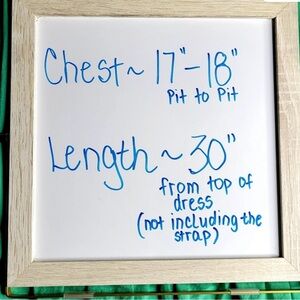 Chest ~ 17"-18"
Pit to Pit
Length ~ 30"
from top of
dress
(not including the
strap)